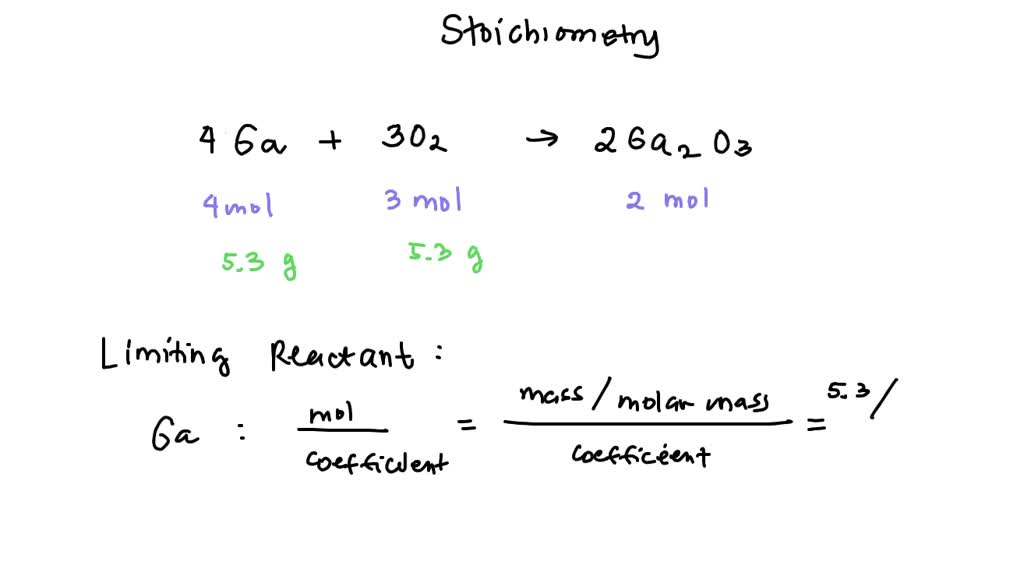 Stoichiometry
4 Ga + 3O₂ → 2 Ga₂O₃
4 mol 3 mol 2 mol
5.3 g 5.3 g
Limiting Reactant :
Ga : mol / coefficient = mass / molar mass / coefficient = 5.3 /